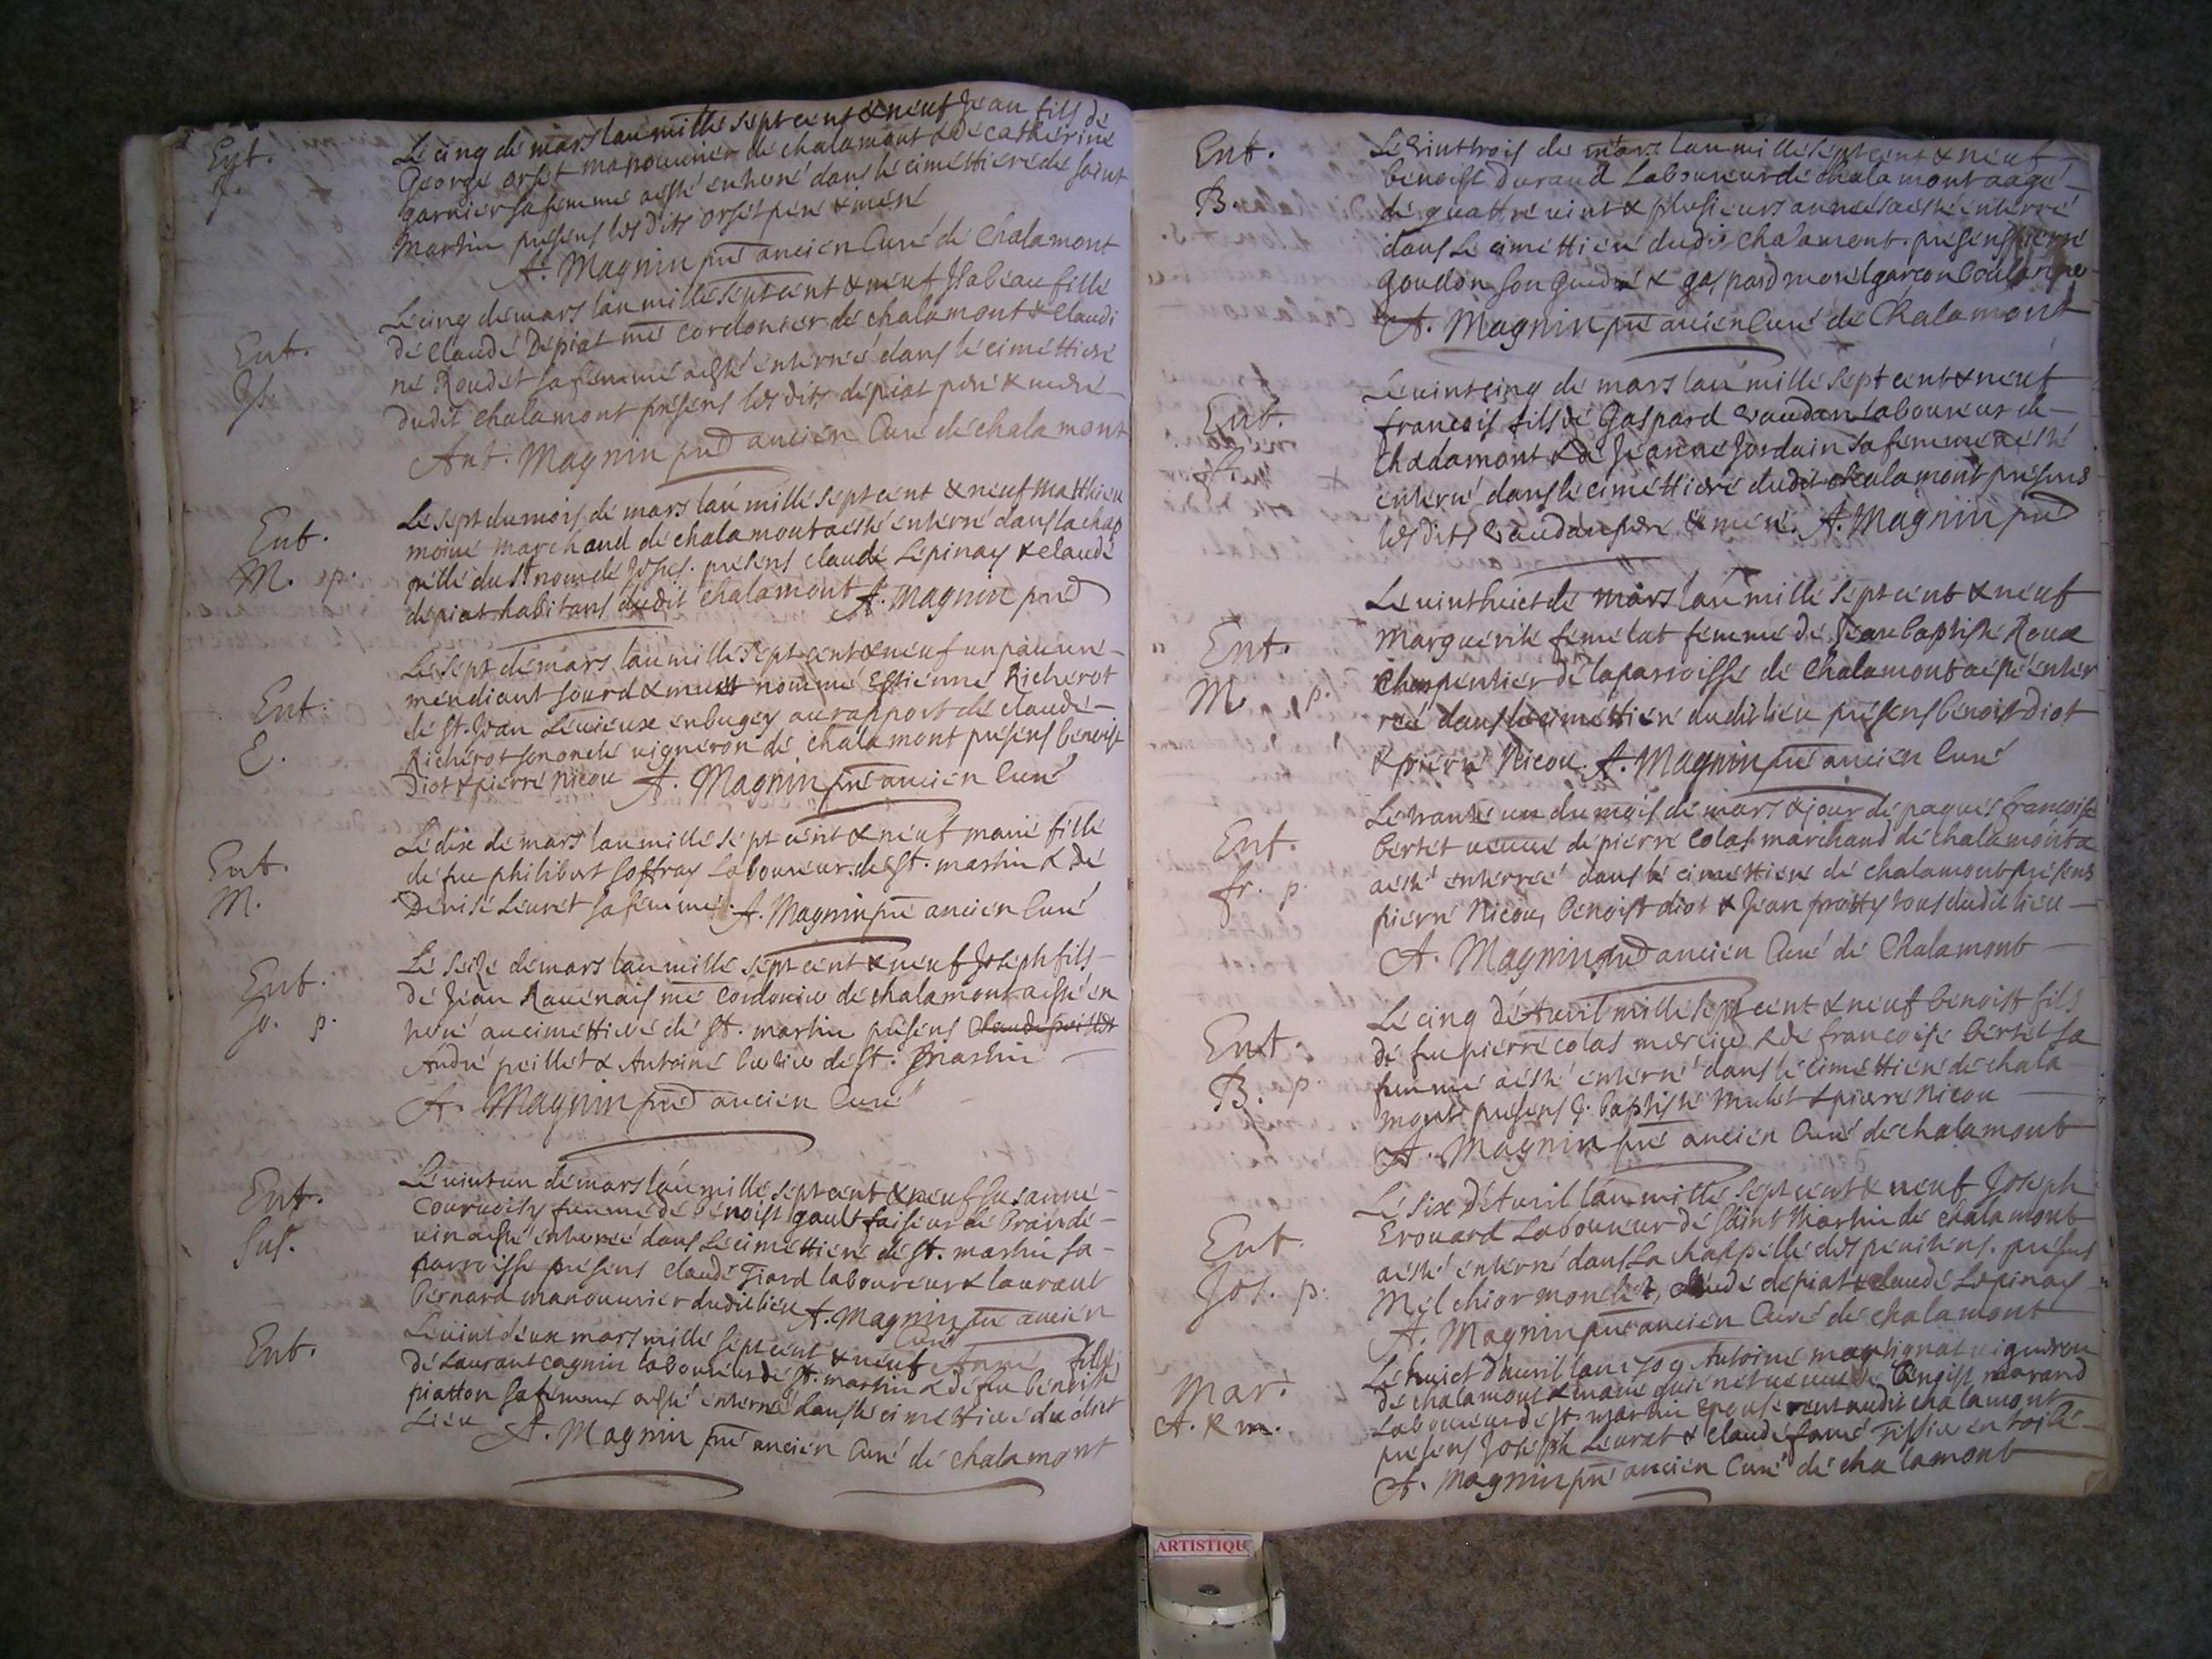 Ent.
J.
Le cinq de mars lan mille sept cent & neuf Jean fils de
George orset manouurier de chalamont & de catherine
garnier sa femme a esté enterré dans le cimettiere de saint
Martin presens les dits orset pere & mere
A. Magnin pre ancien Curé de Chalamont
Ent.
Js.
Le cinq de mars lan mille sept cent & neuf Isabeau fille
de Claude Depiat me cordonier de chalamont & Claudi
ne Roudet sa femme a esté enterrée dans le cimettiere
dudit chalamont presens les dits depiat pere & mere
Ant. Magnin pred ancien Curé de chalamont
Ent.
M. p.
Le sept du mois de mars lan mille sept cent & neuf Matthieu
moine marchand de chalamont a esté enterré dans la chap
pelle du St nom de Jesus. presens claude Lepinay & claude
depiat habitans dudit chalamont A. Magnin pred
Ent.
E.
Le sept de mars lan mille sept cent & neuf un pauure
mendiant sourd & muet nommé Estienne Richerot
de St. Jean Levieux en bugey au rapport de claude
Richerot son oncle vigneron de chalamont presens benoist
Diot & pierre Nicou A. Magnin pre ancien Curé
Ent.
M.
Le dix de mars lan mille sept cent & neuf marie fille
de feu philibert Soffray Laboureur de St. martin & de
Denise Leuret sa femme. A. Magnin pre ancien Curé
Ent.
Jo. p.
Le seize de mars lan mille sept cent & neuf Joseph fils
de Jean Rauenais me Cordonier de chalamont a esté en
terré au cimettiere de St. martin presens
André peillet & Antoine de St. Martin
A. Magnin pred ancien Curé
Ent.
Sus.
Le vint un de mars lan mille sept cent & neuf Susanne
femme de benoist gault faiseur de brande
vin a esté enterrée dans le cimettiere de St. martin sa
parroisse presens claude Tiard laboureur & laurant
bernard manouurier dudit lieu A. Magnin pre ancien
Curé
Ent.
Le vint deux mars mille sept cent & neuf Anne fille
de Laurant cagnin laboureur de St. martin & de feu benoiste
piatton sa femme a esté enterrée dans le cimettiere du dict
Lieu A. Magnin pre ancien Curé de chalamont
Ent.
B.
Le vint trois de mars lan mille sept cent & neuf
benoist Durand Laboureur de chalamont aagé
de quattre vint & plusieurs années a esté enterré
dans le cimettiere dudit chalamont. presens pierre
goudon son gendre & gaspard morel garcon boulanger
A. Magnin pre ancien Curé de Chalamont
Ent.
f.
Le vint cinq de mars lan mille sept cent & neuf
francois fils de Gaspard Vaudan laboureur de
Chalamont & de Jeanne Jordain sa femme a esté
enterré dans le cimettiere dudit chalamont presens
les dits Vaudan pere & mere. A. Magnin pred
Ent.
M. p.
Le vint huict de mars lan mille sept cent & neuf
Marguerite femelat femme de Jean baptiste Roux
Charpentier de la parroisse de Chalamont a esté enter
rée dans le cimettiere dudit lieu presens benoist Diot
& pierre Nicou. A. Magnin pre ancien Curé
Ent.
fr. p.
Le trante un du mois de mars & jour de paques francoise
bertet veuue de pierre Colas marchand de chalamont a
a esté enterrée dans le cimettiere de chalamont presens
pierre Nicou, benoist diot & Jean tous dudit lieu
A. Magnin pred ancien Curé de Chalamont
Ent.
B. p.
Le cinq d'Auril mille sept cent & neuf benoist fils
de feu pierre colas mercier & de francoise bertet sa
femme a esté enterré dans le cimettiere de chala
mont presens J. baptiste Mulet & pierre Nicou
A. Magnin pre ancien Curé de chalamont
Ent.
Jos. p.
Le six d'Auril lan mille sept cent & neuf Joseph
Erouard Laboureur de Saint Martin de chalamont
a esté enterré dans la chappelle des penitens. presens
Melchior monchet, claude depiat & claude Lepinay
A. Magnin pre ancien Curé de chalamont
Mar.
A. & m.
Le huict d'auril lan 1709 Antoine martignat vigneron
de chalamont & marie veuue de benoist
Laboureur de St. martin epouserent audit chalamont
presens Joseph Leurat & claude faure Tissier en toile
A. Magnin pre ancien Curé de chalamont
ARTISTIQU